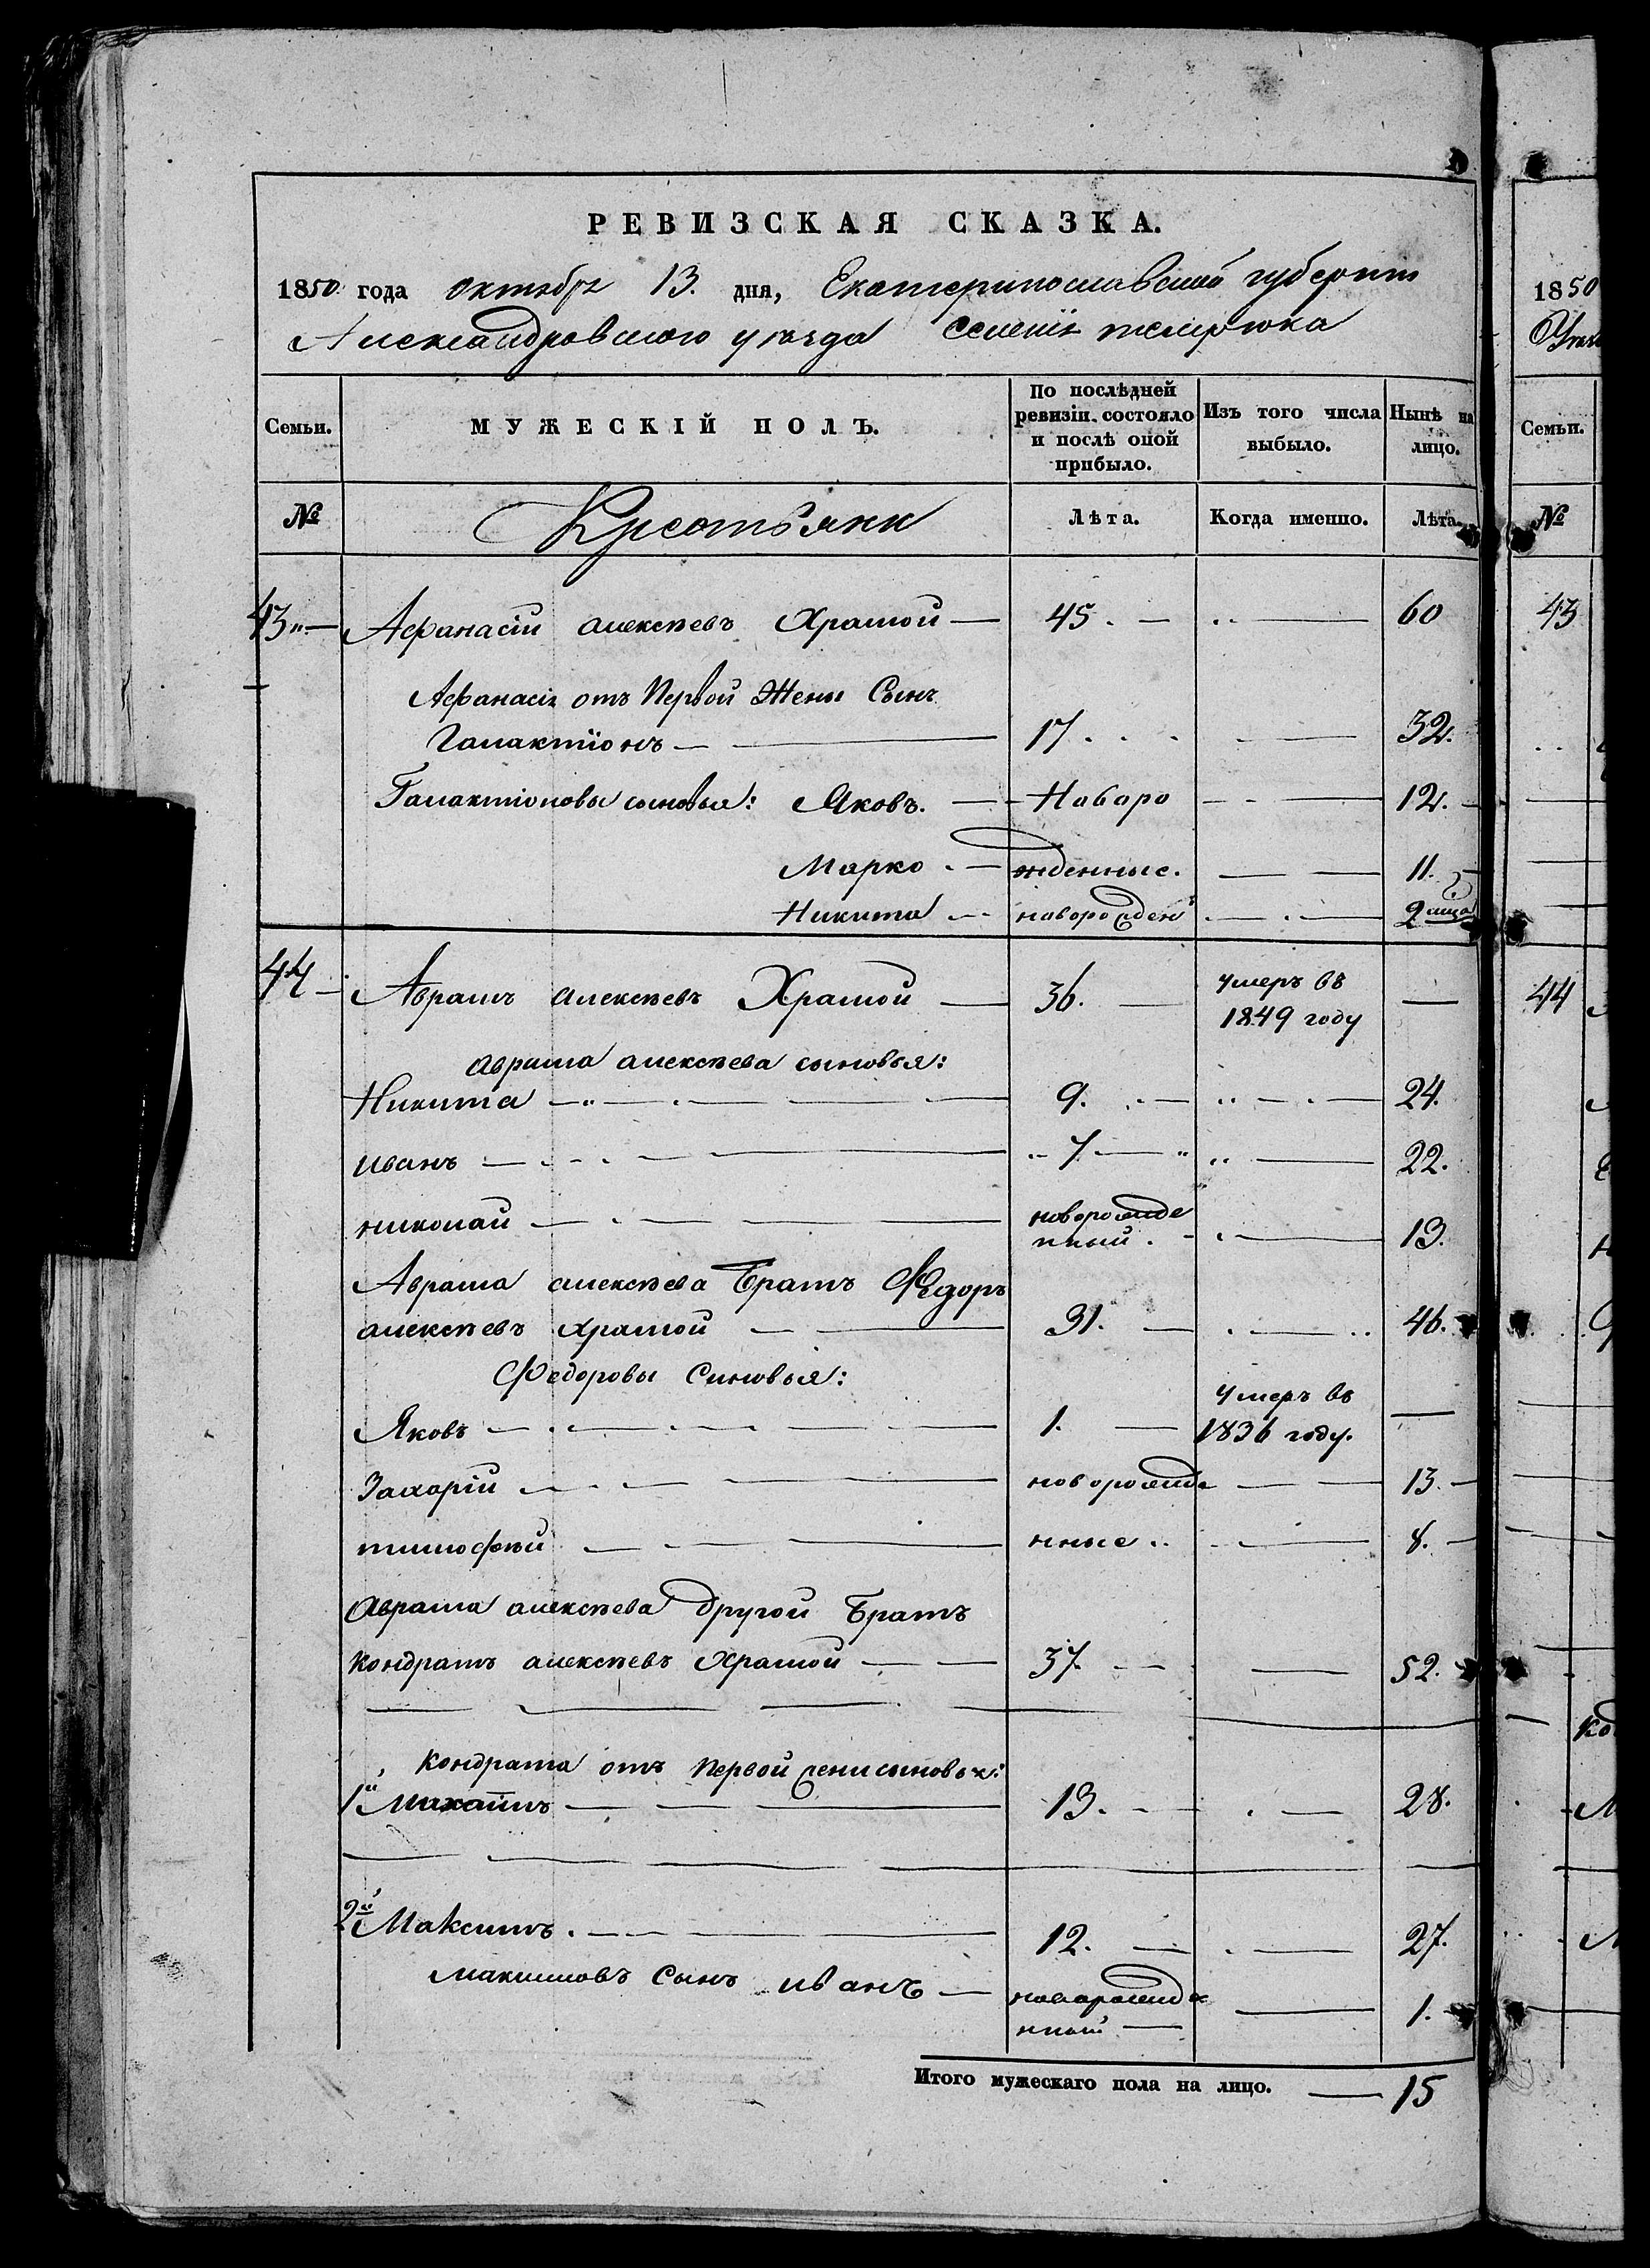 РЕВИЗСКАЯ СКАЗКА.
1850 года октября 13. дня, Екатеринославской губернии
Александровского уезда Селенія темрюка
Семьи. МУЖЕСКІЙ ПОЛЪ. По послѣдней ревизіи состояло и послѣ оной прибыло. Изъ того числа выбыло. Нынѣ на лицо.
№ Крестьяни Лѣта. Когда именно. Лѣта.
43 Афанасій алексѣевъ Храмой 45. 60
Афанасія отъ Первой Жены Сынъ
Галактіонъ 17. 32.
Галактіоновы сыновья: Яковъ. Новоро 12.
Марко жденные. 11.
Никита новорожден 2
44 Аврамъ алексѣевъ Храмой 36. умеръ въ
1849 году
аврама алексѣева сыновья:
Никита 9. 24.
иванъ 7 22.
николай новорожде
нный. 13.
Аврама алексѣева Братъ Федоръ
алексѣевъ храмой 31. 46.
Федоровы Синовья:
Яковъ 1. умеръ въ
1836 году.
Захарій новорожде 13
тимофѣй нные 8.
аврама алексѣева другой Братъ
Кондратъ алексѣевъ Храмой 37. 52.
Кондрата отъ Первой жени сыновья:
1й Михаилъ 13. 28.
2й Максимъ. 12. 27.
максимовъ Сынъ иванъ новорожде
нный 1.
Итого мужескаго пола на лицо. 15
1850
Семьи.
№
43
44